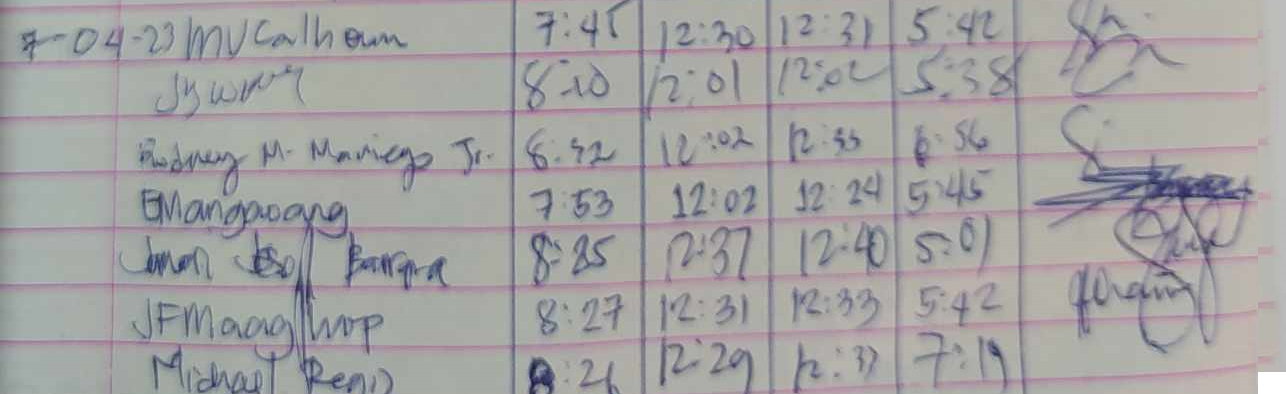 7-04-23 MVCalhoun 7:45 12:30 12:31 5:42
8:10 12:01 12:02 5:38
Rodney M. Maniego Jr. 8:32 12:02 12:33 6:56
EMangaoang 7:53 12:02 12:24 5:45
8:25 12:37 12:40 5:01
JFMaaghop 8:27 12:31 12:33 5:42
Michael 12:29 12:33 7:19